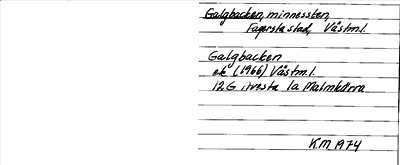 Galgbacken, minnessten,
Fagersta stad, Västml.
Galgbacken
ek (1966) Västml.
12G Avesta 1a Malmkärra
K.M 1974